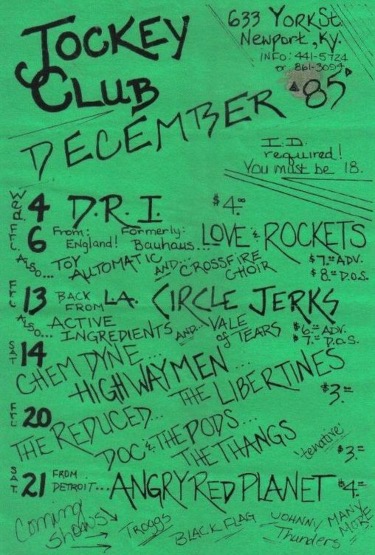 JOCKEY CLUB
633 YORK St.
Newport, Ky.
INFO: 441-5724
or 861-3094
DECEMBER '85
I.D. required!
You must be 18.
Wed 4 D.R.I. $4.00
FRI 6 From: England! Formerly: Bauhaus... LOVE & ROCKETS
ALSO... TOY AUTOMATIC AND... CROSSFIRE CHOIR $7.00 ADV.
$8.00 D.O.S.
FRI 13 BACK FROM L.A. CIRCLE JERKS
ALSO... ACTIVE INGREDIENTS AND... VALE of TEARS $6.00 ADV.
$7.00 D.O.S.
SAT 14 CHEM DYNE...
HIGHWAYMEN...
THE LIBERTINES $3.00
FRI 20 THE REDUCED...
DOC & THE PODS...
THE THANGS "tenative" $3.00
SAT. 21 FROM DETROIT... ANGRY RED PLANET $4.00
Coming Shows! Troggs BLACK FLAG JOHNNY Thunders MANY MORE